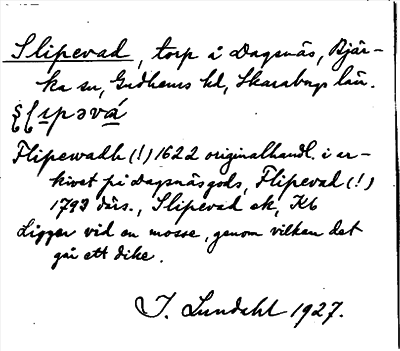 Slipevad, torp å Dagsnäs, Bjär-
ka sn, Gudhems hd, Skaraborgs län.
ʃʃịpəvá
Flipewadh (!) 1622 originalhandl. i ar-
kivet på Dagsnäs gods, Flipevad (!)
1793 därs., Slipevad ek, Kb
Ligger vid en mosse, genom vilken det
går ett dike.
I. Lundahl 1927.